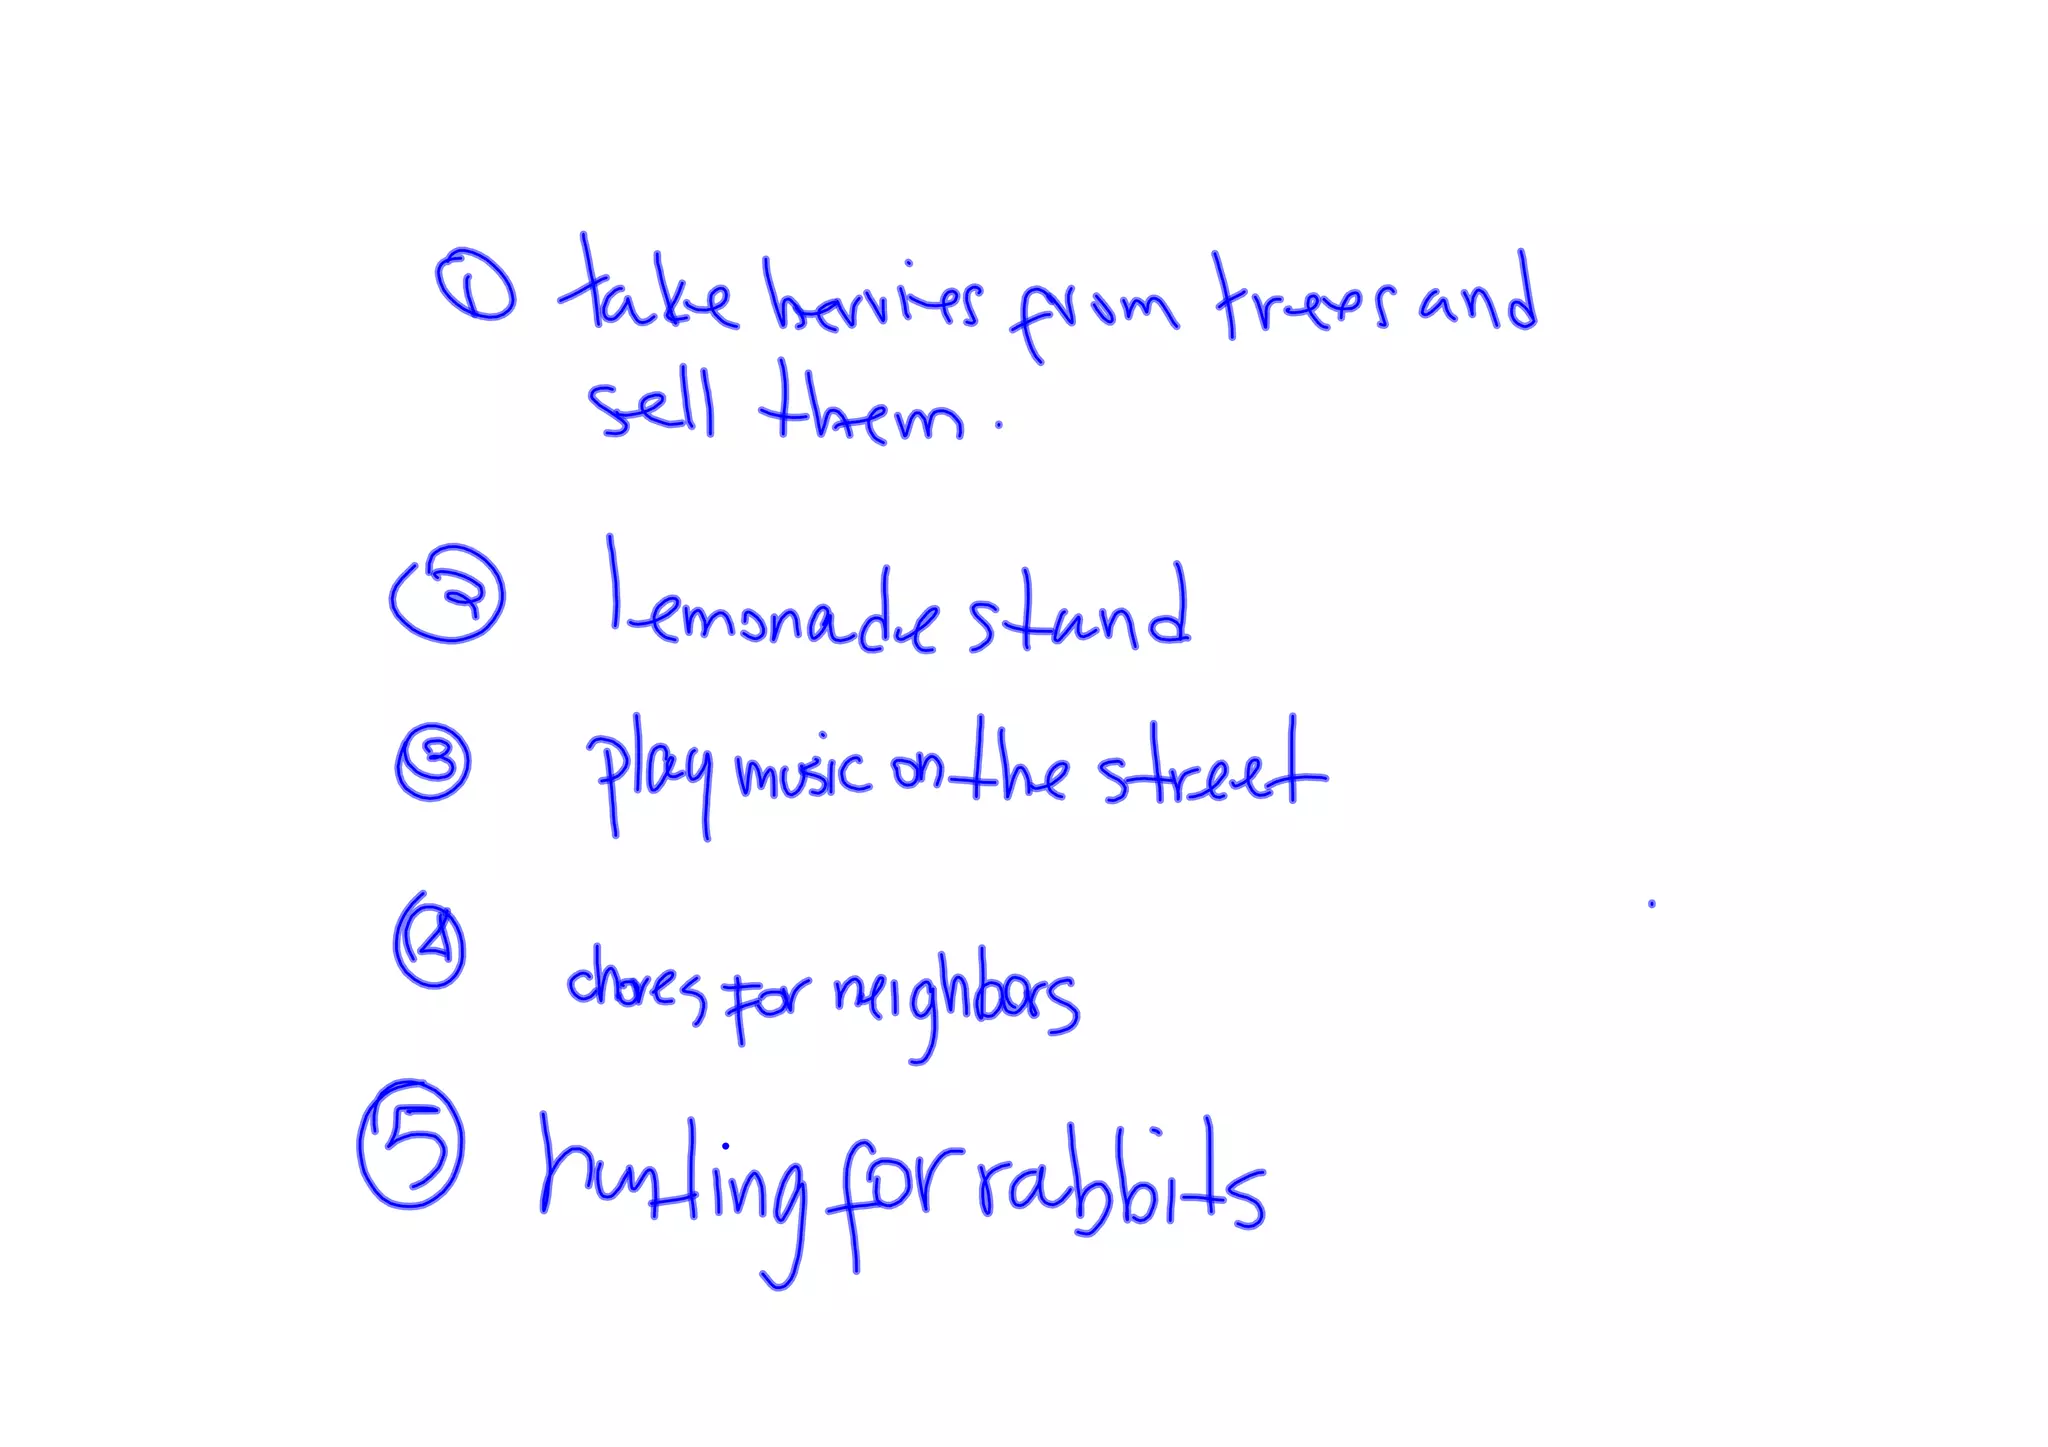 ① take berries from trees and
sell them.
② lemonade stand
③ play music on the street
④ chores for neighbors
⑤ hunting for rabbits